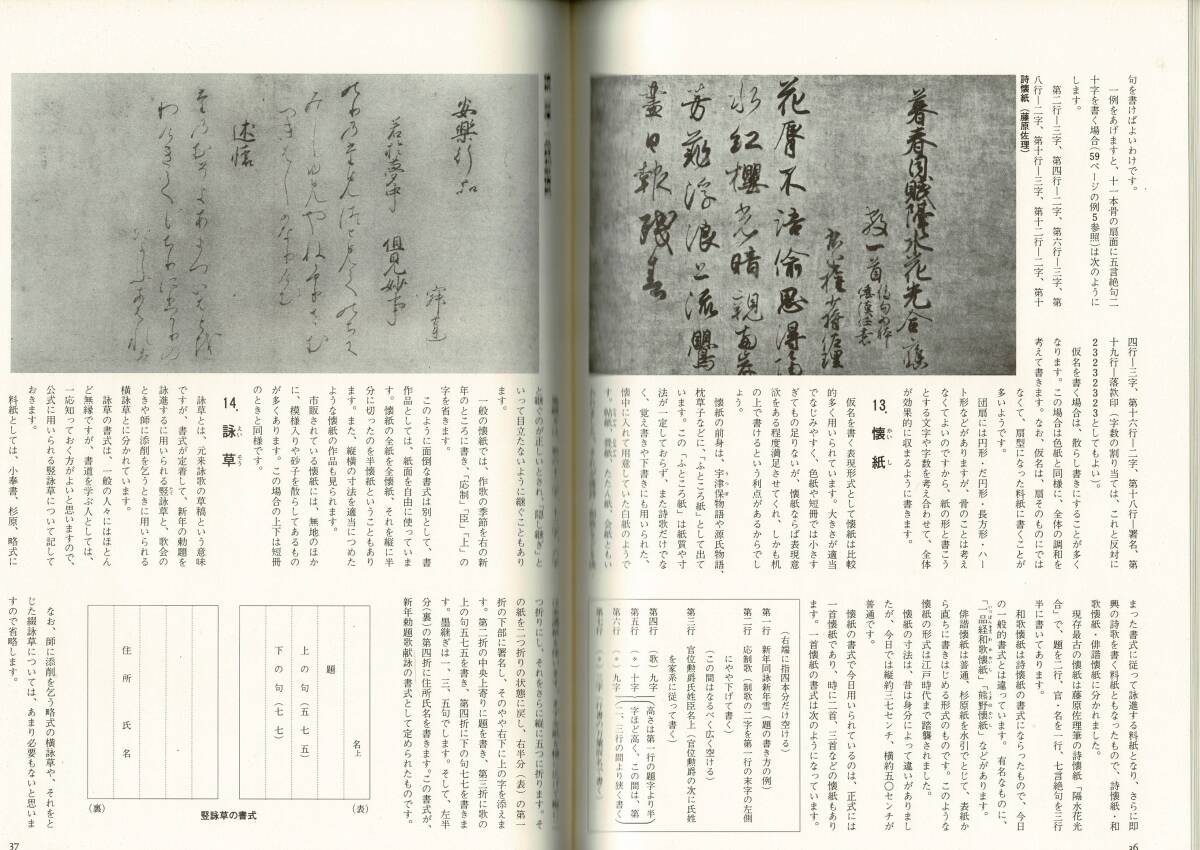 句を書けばよいわけです。
一例をあげますと、十一本骨の扇面に五言絶句二
十字を書く場合(59ページの例5参照)は次のように
します。
第二行―三字、第四行―二字、第六行―三字、第
八行―二字、第十行―三字、第十二行―二字、第十
詩懐紙(藤原佐理)
四行―三字、第十六行―二字、第十八行―署名、第
十九行―落款印(字数の割り当ては、これと反対に
232323233としてもよい)。
仮名を書く場合は、散らし書きにすることが多く
なります。この場合は色紙と同様に、全体の調和を
考えて書きます。なお、仮名は、扇そのものにでは
なくて、扇型になった料紙に書くことが
多いようです。
団扇には円形・だ円形・長方形・ハー
ト形などがありますが、骨のことは考え
なくてよいのですから、紙の形と書こう
とする文字や字数を考え合わせて、全体
が効果的に収まるように書きます。
13.懐紙
かいし
仮名を書く表現形式として懐紙は比較
的多く用いられています。大きさが適当
でなじみやすく、色紙や短冊では小さす
ぎてもの足りないが、懐紙ならば表現意
欲をある程度満足させてくれ、しかも机
の上で書けるという利点があるからでし
ょう。
懐紙の前身は、宇津保物語や源氏物語、
枕草子などに、「ふところ紙」として出て
います。この「ふところ紙」は紙質や寸
法が一定しておらず、また詩歌だけでな
く、覚え書きや下書きにも用いられた、
懐中に入れて用意していた白紙のようで
まった書式に従って詠進する料紙となり、さらに即
興の詩歌を書く料紙ともなったもので、詩懐紙・和
歌懐紙・俳諧懐紙に分かれました。
現存最古の懐紙は藤原佐理筆の詩懐紙「隔水花光
合」で、題を二行、官・名を一行、七言絶句を三行
半に書いてあります。
和歌懐紙は詩懐紙の書式にならったもので、今日
の一般的書式とは違っています。有名なものに、
「一品経和歌懐紙」「熊野懐紙」などがあります。
俳諧懐紙は普通、杉原紙を水引でとじて、表紙か
ら直ちに書きはじめる形式のものです。このような
懐紙の形式は江戸時代まで踏襲されました。
懐紙の寸法は、昔は身分によって違いがありまし
たが、今日では縦約三七センチ、横約五〇センチが
普通です。
懐紙の書式で今日用いられているのは、正式には
一首懐紙であり、時に二首、三首などの懐紙もあり
ます。一首懐紙の書式は次のようになっています。
(右端に指四本分だけ空ける)
第一行 新年同詠新年雪(題の書き方の例)
第二行 応制歌(制歌の二字を第一行の末字の左側
にやや下げて書く)
(この間はなるべく広く空ける)
第三行 官位勲爵氏姓臣名上(官位勲爵の次に氏姓
を家系に従って書く)
第四行(歌)九字(高さは第一行の題字より半
第五行(〃)十字ほど高く、この間は、第
第六行(〃)九字(二、三行の間より狭く書く)
36
いって目立たないように継ぐこともあり
ます。
一般の懐紙では、作歌の季節を右の新
年のところに書き、「応制」「臣」「上」の
字を省きます。
このように面倒な書式は別として、書
作品としては、紙面を自由に使っていま
す。懐紙の全紙を全懐紙、それを縦に半
分に切ったのを半懐紙ということもあり
ます。また、縦横の寸法を適当につめた
ような懐紙の作品も見られます。
市販されている懐紙には、無地のほか
に、模様入りや砂子を散らしてあるもの
が多くあります。この場合の上下は短冊
のときと同様です。
14.詠草
えいそう
詠草とは、元来詠歌の草稿という意味
ですが、書式が定着して、新年の勅題を
詠進するに用いられる竪詠草と、歌会の
ときや師に添削を乞うときに用いられる
横詠草とに分かれています。
詠草の書式は、一般の人々にはほとん
ど無縁ですが、書道を学ぶ人としては、
一応知っておく方がよいと思いますので、
公式に用いられる竪詠草について記して
おきます。
料紙としては、小奉書、杉原、略式に
つ折りにし、それをさらに縦に五つに折ります。そ
の紙を二つ折りの状態に戻し、右半分(表)の第一
折の下部に署名し、そのやや右下に上の字を添えま
す。第二折の中央上寄りに題を書き、第三折に歌の
上の句五七五を書き、第四折に下の句七七を書きま
す。墨継ぎは一、三、五句でします。そして、左半
分(裏)の第四折に住所氏名を書きます。この書式が、
新年勅題歌献詠の書式として定められたものです。
名上
題
上の句(五七五)
下の句(七七)
(表)
住所氏名
(裏)
竪詠草の書式
なお、師に添削を乞う略式の横詠草や、それをと
じた綴詠草については、あまり必要もないと思いま
すので省略します。
37